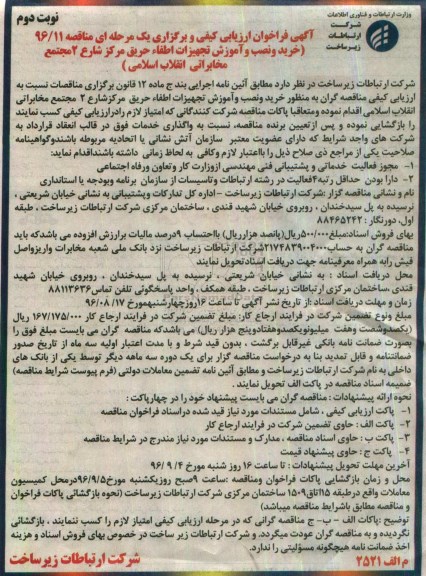 وزارت ارتباطات و فناوری اطلاعات
شرکت
ارتباطات
زیرساخت
نوبت دوم
آگهی فراخوان ارزیابی کیفی و برگزاری یک مرحله ای مناقصه ۹۶/۱۱
(خرید ونصب وآموزش تجهیزات اطفاء حریق مرکز شارع ۲مجتمع
مخابراتی انقلاب اسلامی )
شرکت ارتباطات زیرساخت در نظر دارد مطابق آئین نامه اجرایی بند ج ماده ۱۲ قانون برگزاری مناقصات نسبت به
ارزیابی کیفی مناقصه گران به منظور خرید ونصب وآموزش تجهیزات اطفاء حریق مرکزشارع ۲ مجتمع مخابراتی
انقلاب اسلامی اقدام نموده ومتعاقبا پاکات مناقصه شرکت کنندگانی که امتیاز لازم رادرارزیابی کیفی کسب نمایند
را بازگشایی نموده و پس ازتعیین برنده مناقصه، نسبت به واگذاری خدمات فوق در قالب انعقاد قرارداد به
شرکتهای واجد شرایط که دارای عضویت معتبر سازمان آتش نشانی یا اتحادیه مربوطه باشندوگواهینامه
صلاحیت یکی از مراجع ذی صلاح ذیل را بااعتبار لازم وکافی به لحاظ زمانی داشته باشنداقدام نماید:
۱- مجوز فعالیت خدماتی و پشتیبانی فنی مهندسی ازوزارت کار وتعاون ورفاه اجتماعی
۲- دارا بودن حداقل رتبه۴فعالیت در رشته ارتباطات وتاسیسات از سازمان برنامه وبودجه یا استانداری
نام و نشانی مناقصه گزار :شرکت ارتباطات زیرساخت -اداره کل تدارکات وپشتیبانی به نشانی خیابان شریعتی ،
نرسیده به پل سیدخندان ، روبروی خیابان شهید قندی ، ساختمان مرکزی شرکت ارتباطات زیرساخت ، طبقه
اول، دورنگار : ۸۸۴۶۵۲۴۲
بهای فروش اسناد:مبلغ۵۰۰/۰۰۰ریال(پانصد هزارریال) بااحتساب ۹درصد مالیات برارزش افزوده می باشدکه باید
مناقصه گران به حساب۲۱۷۴۸۳۹۰۰۴۰۰۰شرکت ارتباطات زیرساخت نزد بانک ملی شعبه مخابرات واریزواصل
فیش رابه همراه معرفینامه جهت دریافت اسنادتحویل نمایند
محل دریافت اسناد : به نشانی خیابان شریعتی ، نرسیده به پل سیدخندان ، روبروی خیابان شهید
قندی ،ساختمان مرکزی ارتباطات زیرساخت ، طبقه همکف ، واحد پاسخگوئی تلفن تماس۸۸۱۱۳۶۳۶
زمان و مهلت دریافت اسناد :از تاریخ نشر آگهی تا ساعت ۱۶روزچهارشنبهمورخ ۹۶/۰۸/۱۷
مبلغ ونوع تضمین شرکت در فرایند ارجاع کار: مبلغ تضمین شرکت در فرایند ارجاع کار ۱۶۷/۱۷۵/۰۰۰ ریال
(یکصدوشصت وهفت میلیونویکصدوهفتادوپنج هزار ریال) می باشدکه مناقصه گران می بایست مبلغ فوق را
بصورت ضمانت نامه بانکی غیرقابل برگشت ، بدون قید شرط و با مدت اعتبار اولیه سه ماه از تاریخ صدور
ضمانتنامه و قابل تمدید بنا به درخواست مناقصه گزار برای یک دوره سه ماهه دیگر توسط یکی از بانک های
داخلی به نام شرکت ارتباطات زیرساخت و مطابق آئین نامه تضمین معاملات دولتی (فرم پیوست شرایط مناقصه)
ضمیمه اسناد مناقصه در پاکت الف تحویل نمایند .
نحوه ارائه پیشنهادات : مناقصه گران می بایست پیشنهاد خود را در چهارپاکت :
۱- پاکت ارزیابی کیفی ، شامل مستندات مورد نیاز قید شده دراسناد فراخوان مناقصه
۲- پاکت الف : حاوی تضمین شرکت در فرایند ارجاع کار
۳- پاکت ب : حاوی اسناد مناقصه ، مدارک و مستندات مورد نیاز مندرج در شرایط مناقصه
۴- پاکت ج : حاوی پیشنهاد قیمت
آخرین مهلت تحویل پیشنهادات : تا ساعت ۱۶ روز شنبه مورخ ۴ /۹ /۹۶
محل و زمان بازگشایی پاکات فراخوان ومناقصه :ساعت ۹صبح روزیکشنبه مورخ۹۶/۹/۵درمحل کمیسیون
معاملات واقع درطبقه ۱۵اتاق۱۵۰۹ ساختمان مرکزی شرکت ارتباطات زیرساخت (نحوه بازگشائی پاکات فراخوان
و مناقصه مطابق باشرایط مناقصه میباشد)
توضیح :پاکات الف - ب - ج مناقصه گرانی که در مرحله ارزیابی کیفی امتیاز لازم را کسب ننمایند ، بازگشائی
نگردیده و به مناقصه گران عودت میگردد. و شرکت ارتباطات زیر ساخت در خصوص بهای فروش اسناد و هزینه
اخذ ضمانت نامه هیچگونه مسؤلیتی را ندارد.
م الف ۲۵۲۱
شرکت ارتباطات زیرساخت